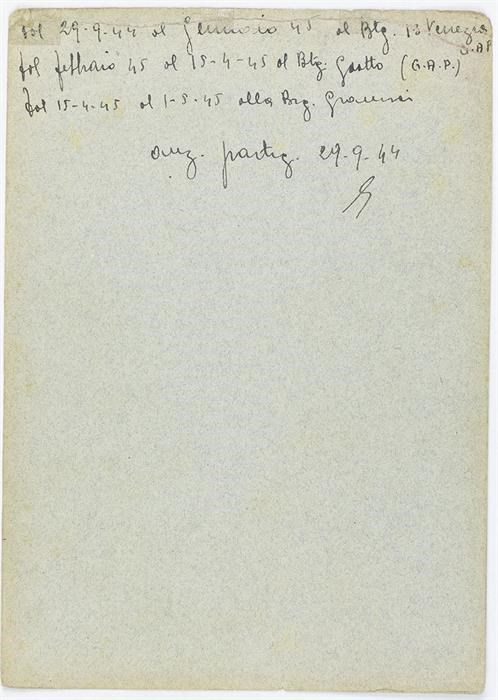 dal 29-9-44 al Gennaio 45 al Btg. 13 Venezia
G.AP
dal febbraio 45 al 15-4-45 al Btg. Gaotto (G.A.P.)
dal 15-4-45 al 1-5-45 alla Brg. Gramsci
anz. partig. 29-9-44